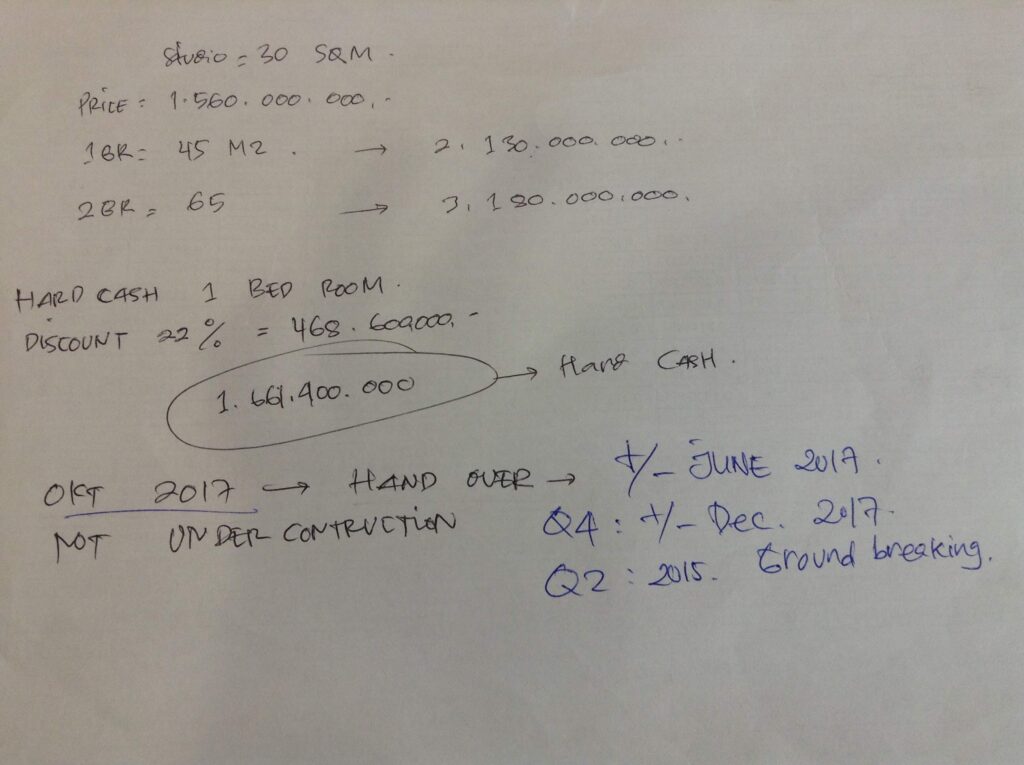 Studio = 30 SQM.
PRICE = 1.560.000.000,-
1BR = 45 M2. → 2.130.000.000,-
2BR = 65 → 3.180.000.000.
HARD CASH 1 BED ROOM.
DISCOUNT 22% = 468.600.000,-
1.661.400.000 → Hard CASH.
OKT 2017 → HAND OVER → +/- JUNE 2017.
NOT UNDER CONTRUCTION
Q4 : +/- Dec. 2017.
Q2 : 2015. Ground breaking.